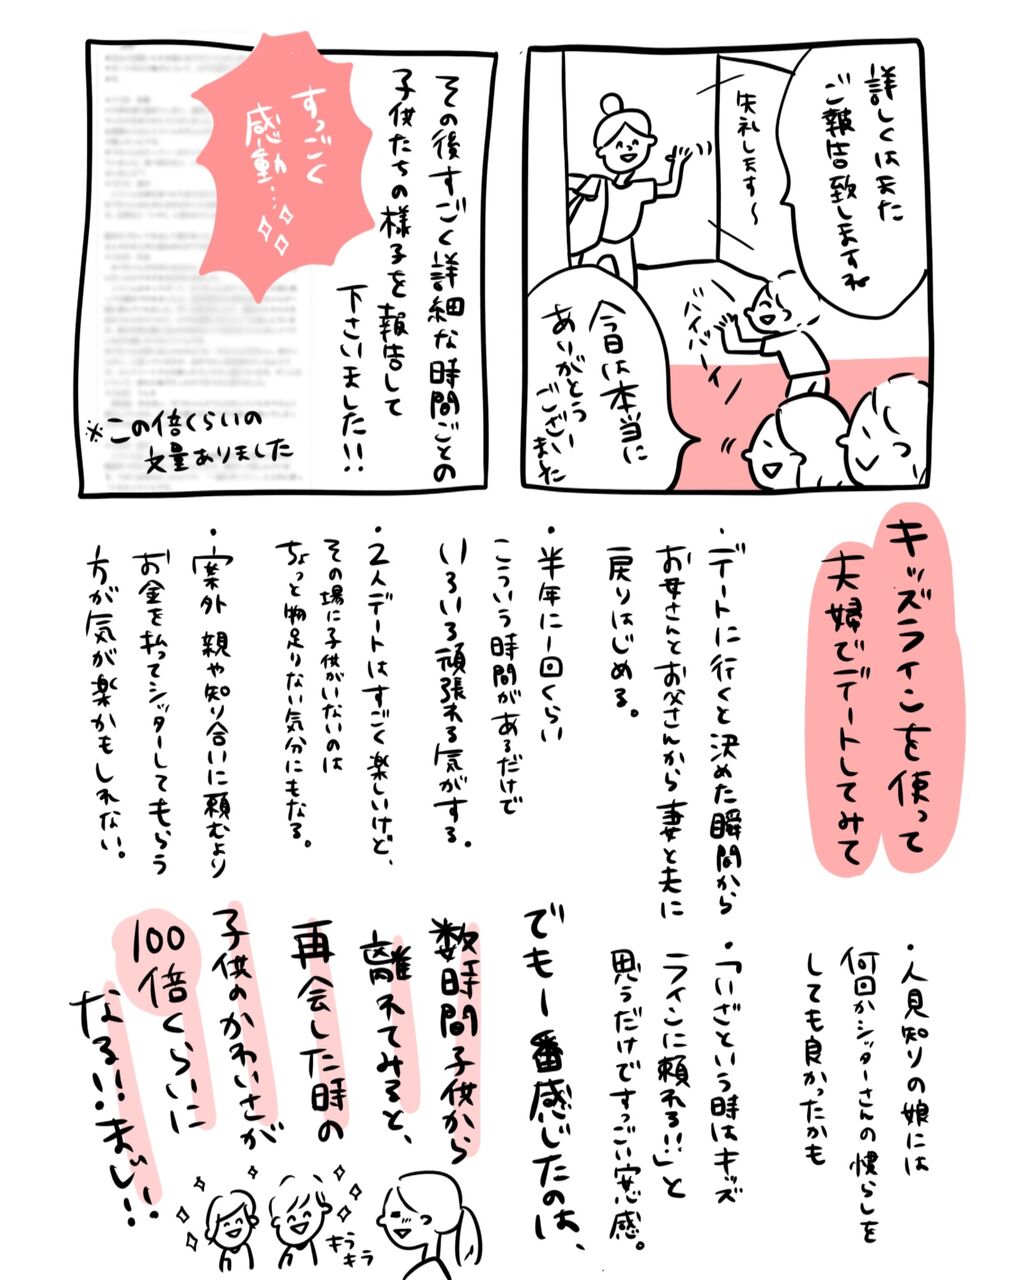 詳しくはまた
ご報告致しますね
失礼します〜
バイバーイ
今日は本当に
ありがとう
ございました
その後すごく詳細な時間ごとの
子供たちの様子を報告して
下さいました!!
すっごく
感動…
※この倍くらいの
文量ありました
キッズラインを使って
夫婦でデートしてみて
・デートに行くと決めた瞬間から
お母さんとお父さんから妻と夫に
戻りはじめる。
・半年に1回くらい
こういう時間があるだけで
いろいろ頑張れる気がする。
・2人デートはすごく楽しいけど、
その場に子供がいないのは
ちょっと物足りない気分にもなる。
・案外親や知り合いに頼むより
お金を払ってシッターしてもらう
方が気が楽かもしれない。
・人見知りの娘には
何回かシッターさんの慣らしを
しても良かったかも
・「いざという時はキッズ
ラインに頼れる!!」と
思うだけですっごい安心感。
でも一番感じたのは、
数時間子供から
離れてみると、
再会した時の
子供のかわいさが
100
倍くらいに
なる!!まじ!!
キラ
キラ